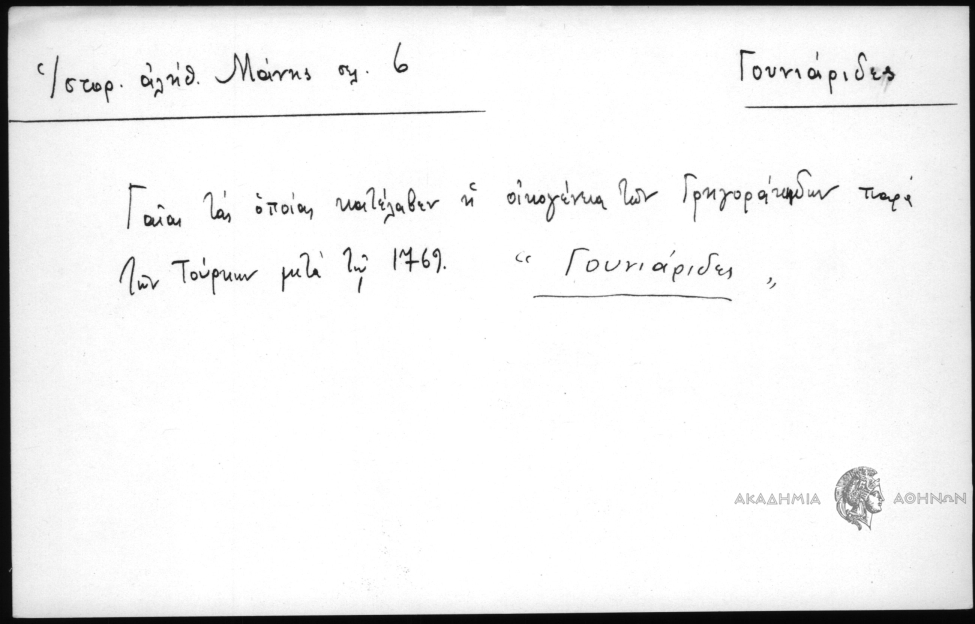 Ἱστορ. ἀλήθ. Μάνης σελ. 6
Γουνιάριδες
Γαῖαι τάς ὁποίας κατέλαβεν ἡ οἰκογένεια τῶν Γρηγοράκηδων παρά
τῶν Τούρκων μετά τῷ 1769. “ Γουνιάριδες „
ΑΚΑΔΗΜΙΑ ΑΘΗΝΩΝ